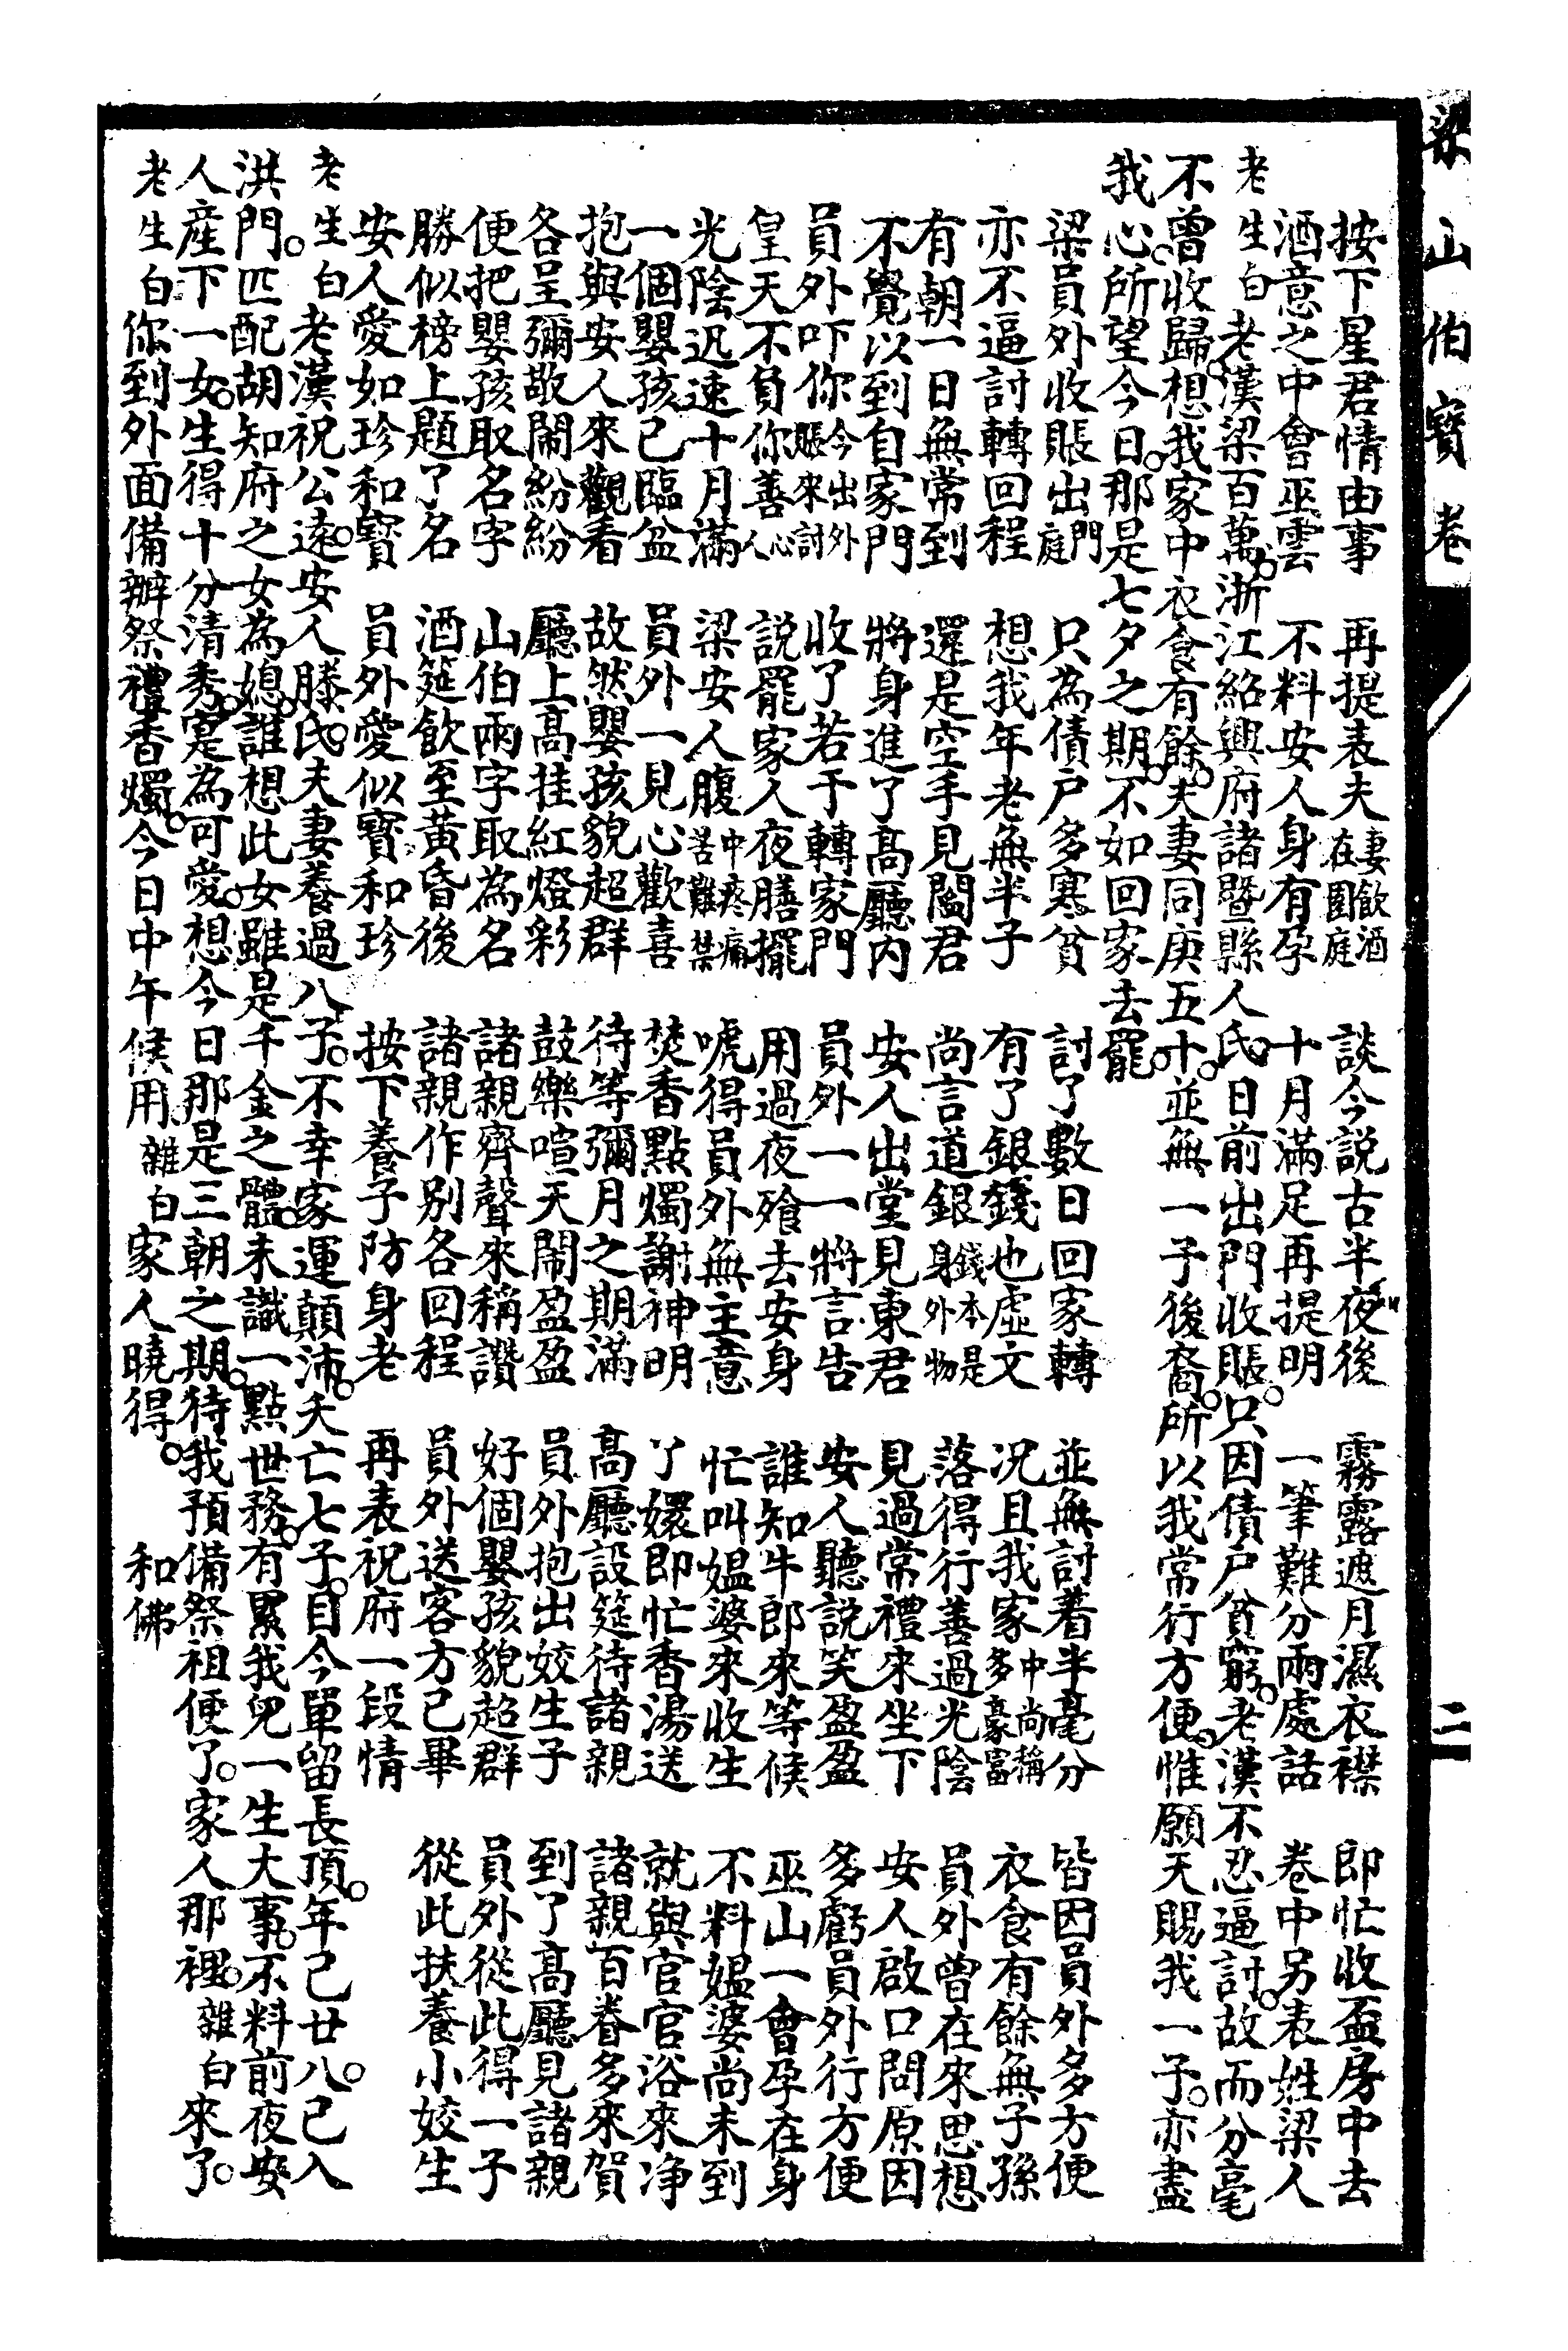 梁山伯寳卷
二
按下星君情由事　再提表夫妻飲酒在園庭　談今説古半夜後　霧露遮月濕衣襟　即忙收盃房中去
酒意之中會巫雲　不料安人身有孕　十月滿足再提明　一筆難分兩處話　卷中另表姓梁人
老生白老漢梁百萬。浙江紹興府諸暨縣人氏。日前出門收賬。只因債户貧窮。老漢不忍逼討。故而分毫
不曾收歸。想我家中衣食有餘。夫妻同庚五十。並無一子後裔。所以我常行方便。惟願天賜我一子。亦盡
我心。所望今日。那是七夕之期。不如回家去罷。
梁員外收賬出門庭　只為債户多寒貧　討了數日回家轉　並無討着半毫分　皆因員外多方便
亦不逼討轉回程　想我年老無半子　有了銀錢也虛文　况且我家中尚稱多豪富　衣食有餘無子孫
有朝一日無常到　還是空手見閻君　尚言道銀錢本是身外物　落得行善過光陰　員外曾在來思想
不覺以到自家門　將身進了高廳内　安人出堂見東君　見過常禮來坐下　安人啟口問原因
員外吓你今出外賬來討　收了若于轉家門　員外一一將言告　安人聽説笑盈盈　多虧員外行方便
皇天不負你善心人　説罷家人夜膳擺　用過夜飧去安身　誰知牛郎來等候　巫山一會孕在身
光陰迅速十月滿　梁安人腹中疼痛苦難禁　唬得員外無主意　忙叫媪婆來收生　不料媪婆尚未到
一個嬰孩己臨盆　員外一見心歡喜　焚香點燭謝神明　丫嬛即忙香湯送　就與官官浴來净
抱與安人來觀看　故然嬰孩貌超群　待等彌月之期滿　高廳設筵待諸親　諸親百眷多來賀
各呈彌敬鬧紛紛　廳上高挂紅燈彩　鼓樂喧天鬧盈盈　員外抱出姣生子　到了高廳見諸親
便把嬰孩取名字　山伯兩字取為名　諸親齊聲來稱讚　好個嬰孩貌超群　員外從此得一子
勝似榜上題了名　酒筵飲至黃昏後　諸親作别各回程　員外送客方己畢　從此扶養小姣生
安人愛如珍和寳　員外愛似寳和珍　按下養子防身老　再表祝府一段情
老生白老漢祝公遠。安人滕氏。夫妻養過八子。不幸家運顛沛。夭亡七子。目今單留長頂。年己廿八。己入
洪門。匹配胡知府之女為媳。誰想此女雖是千金之體。未識一點世務。有累我兒一生大事。不料前夜安
人産下一女。生得十分清秀。寔為可愛。想今日那是三朝之期。待我預備祭祖便了。家人那裡。雜白來了。
老生白你到外面備辦祭禮香燭。今日中午候用。雜白家人曉得。　和佛